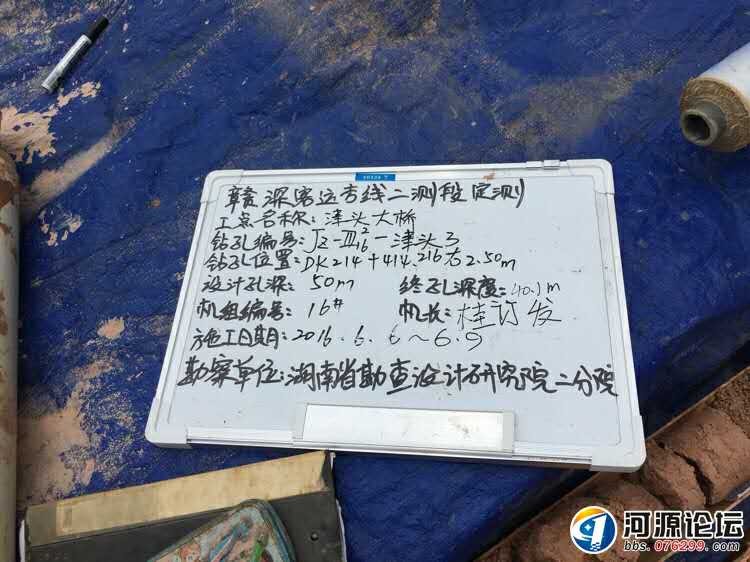 赣深客运专线二测段定测
工点名称：津头大桥
钻孔编号：JZ-Ⅲ16²-津头3
钻孔位置：DK214+414.216右2.50m
设计孔深：50m 终孔深度：40.1m
机组编号：16# 机长：桂訂发
施工日期：2016.6.6～6.9
勘察单位：湖南省勘查设计研究院二分院
河源论坛
bbs.076299.com